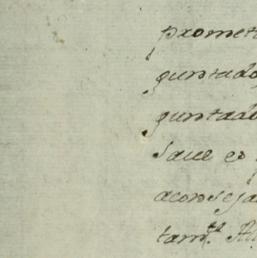 promet
guntado
guntado
save es
aconseja
tam.te